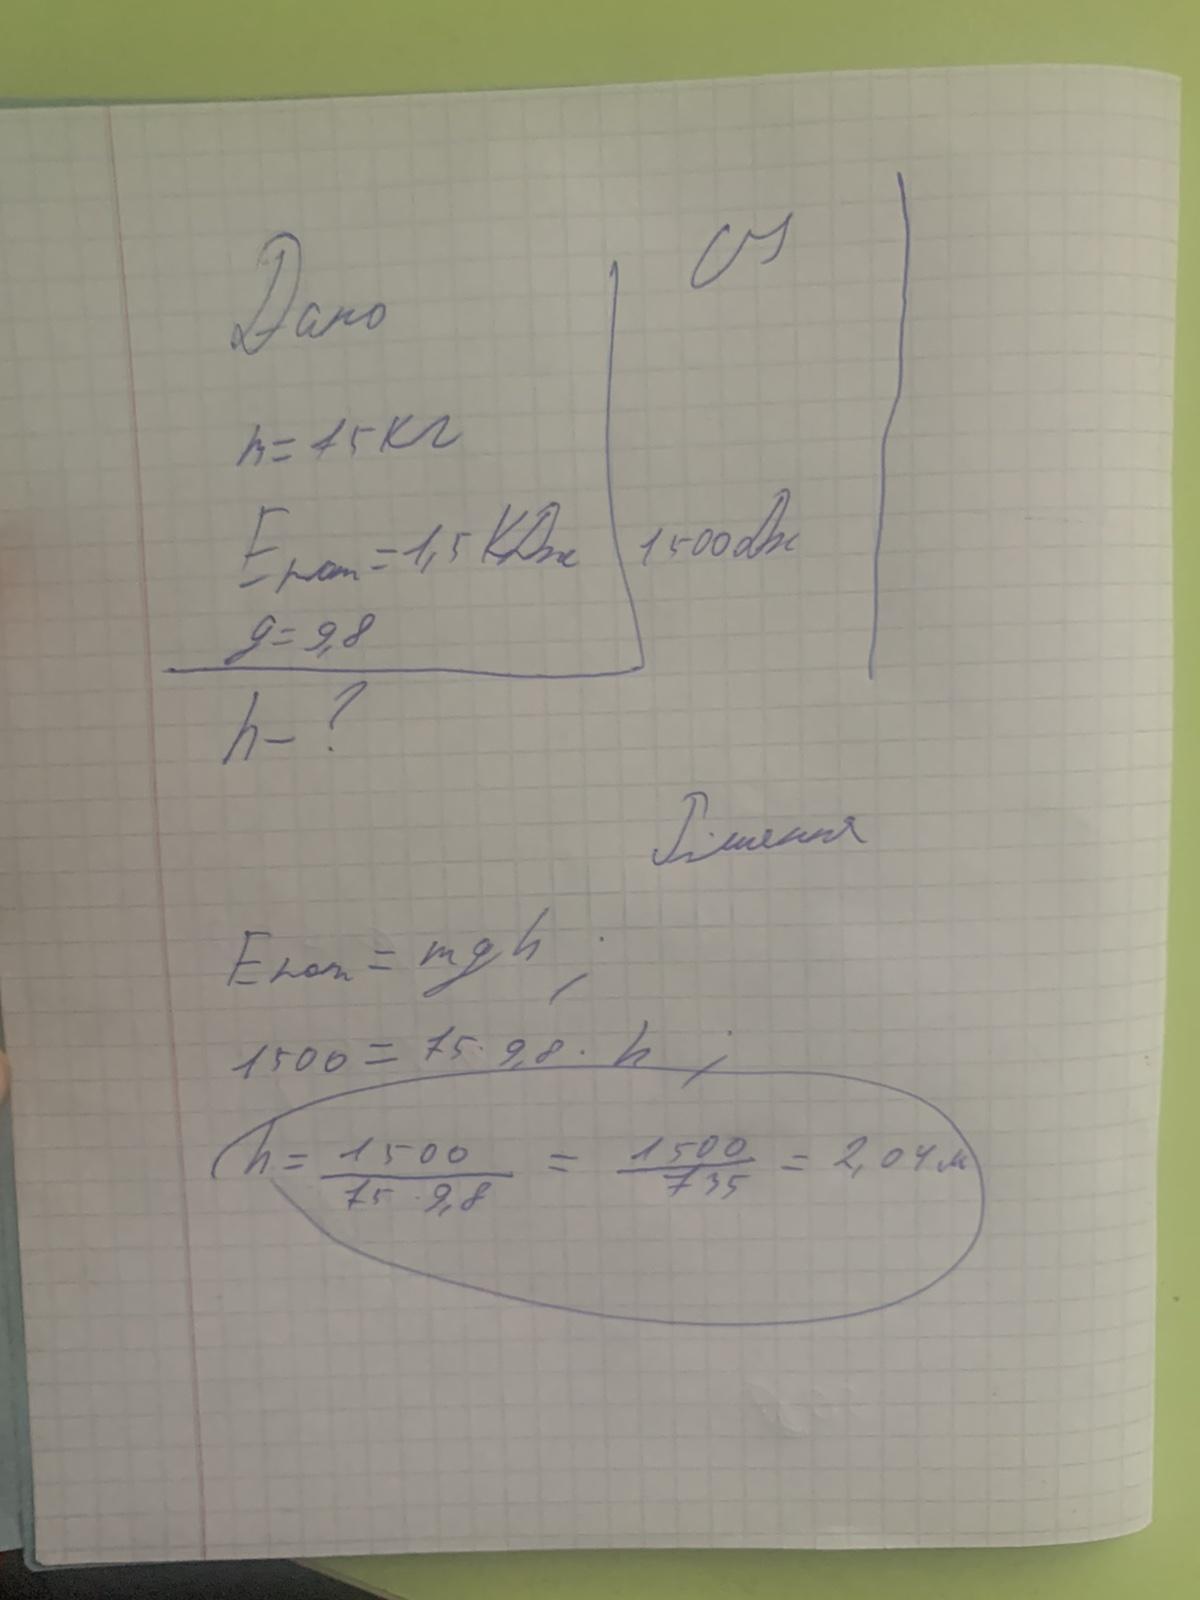 Дано
СИ
m = 75 кг
Eпот = 1,5 КДж
1500 Дж
g = 9,8
h - ?
Рішення
Eпот = mgh;
1500 = 75 · 9,8 · h;
h = 1500 / 75 · 9,8 = 1500 / 735 = 2,04 м